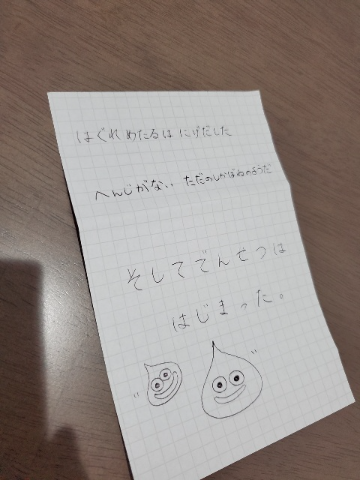 はぐれめたるは にげだした
へんじがない ただのしかばねのようだ
そしてでんせつは
はじまった。